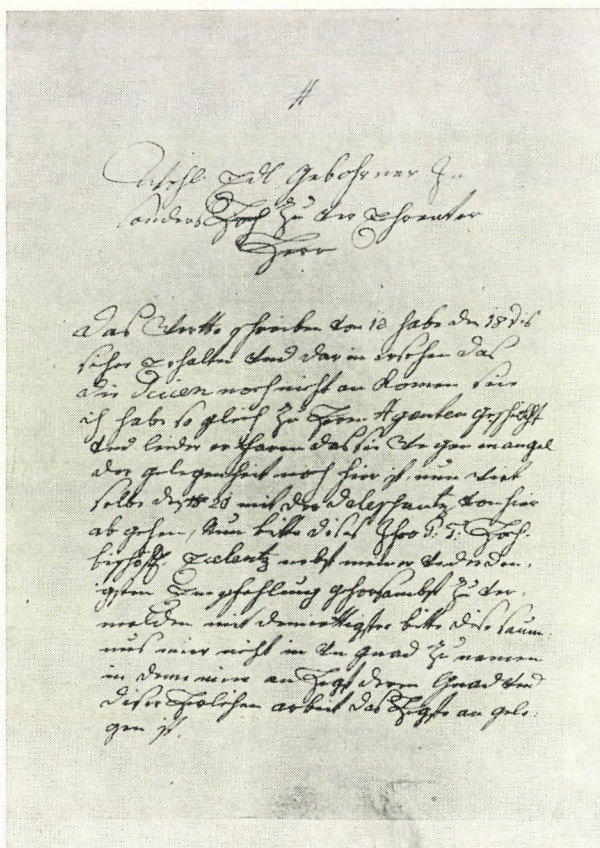 Wohl Edl Gebohrner In
sonders Hoch Zu Ver Ehrenter
Herr
Das Wertte schreiben Von 12 habe den 18 dis
sicher Erhalten Vnd dar in ersehen das
die noch nicht an komen sein
ich habe so gleich Zu Herrn Agenten geschickt
Vnd leider er fharen das sie We gen mangel
der gelegenheit noch hier ist nun wirt
selbe den 20 mit der Von hier
ab gehen, Nun bitte dises Ihro Hoch
bischöff. nebst meiner Vnderden,
igsten Empfehlung gehorsambst Zu Ver,
melden mit demüttigster bitte dise saum,
nus mir nicht in Vn gnad Zu nemen
in deme mir an Hegst deren Gnad Vnd
diser solichen arbeit das Hegste an gele,
gen ist.